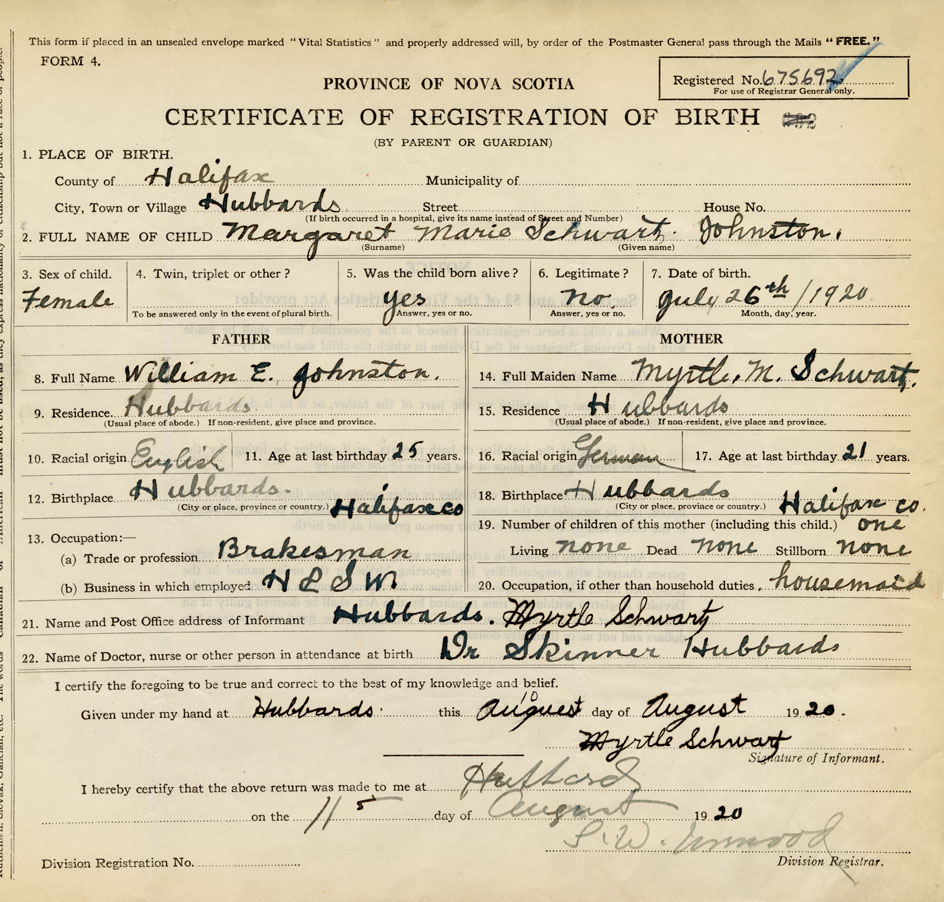 This form if placed in an unsealed envelope marked "Vital Statistics" and properly addressed will, by order of the Postmaster General pass through the Mails "FREE."
FORM 4.
Registered No. 675692
For use of Registrar General only.
PROVINCE OF NOVA SCOTIA
CERTIFICATE OF REGISTRATION OF BIRTH
(BY PARENT OR GUARDIAN)
1. PLACE OF BIRTH.
County of Halifax Municipality of
City, Town or Village Hubbards Street House No.
(If birth occurred in a hospital, give its name instead of Street and Number)
2. FULL NAME OF CHILD Margaret Marie Schwartz Johnston.
(Surname) (Given name)
3. Sex of child. 4. Twin, triplet or other? 5. Was the child born alive? 6. Legitimate? 7. Date of birth.
Female yes no. July 26th/1920
To be answered only in the event of plural birth. Answer, yes or no. Answer, yes or no. Month, day, year.
FATHER
8. Full Name William E. Johnston.
9. Residence. Hubbards.
(Usual place of abode.) If non-resident, give place and province.
10. Racial origin English 11. Age at last birthday 25 years.
12. Birthplace Hubbards.
(City or place, province or country.) Halifax co
13. Occupation:—
(a) Trade or profession Brakesman
(b) Business in which employed H & S W.
MOTHER
14. Full Maiden Name Myrtle. M. Schwartz.
15. Residence Hubbards
(Usual place of abode.) If non-resident, give place and province.
16. Racial origin German 17. Age at last birthday 21 years.
18. Birthplace Hubbards
(City or place, province or country.) Halifax co.
19. Number of children of this mother (including this child.) one
Living none Dead none Stillborn none
20. Occupation, if other than household duties. housemaid
21. Name and Post Office address of Informant Hubbards. Myrtle Schwartz
22. Name of Doctor, nurse or other person in attendance at birth Dr Skinner Hubbards
I certify the foregoing to be true and correct to the best of my knowledge and belief.
10
Given under my hand at Hubbards. this August day of August 1920.
Myrtle Schwartz
Signature of Informant.
I hereby certify that the above return was made to me at Hubbards
on the 11 day of August 1920
Division Registration No. Division Registrar.